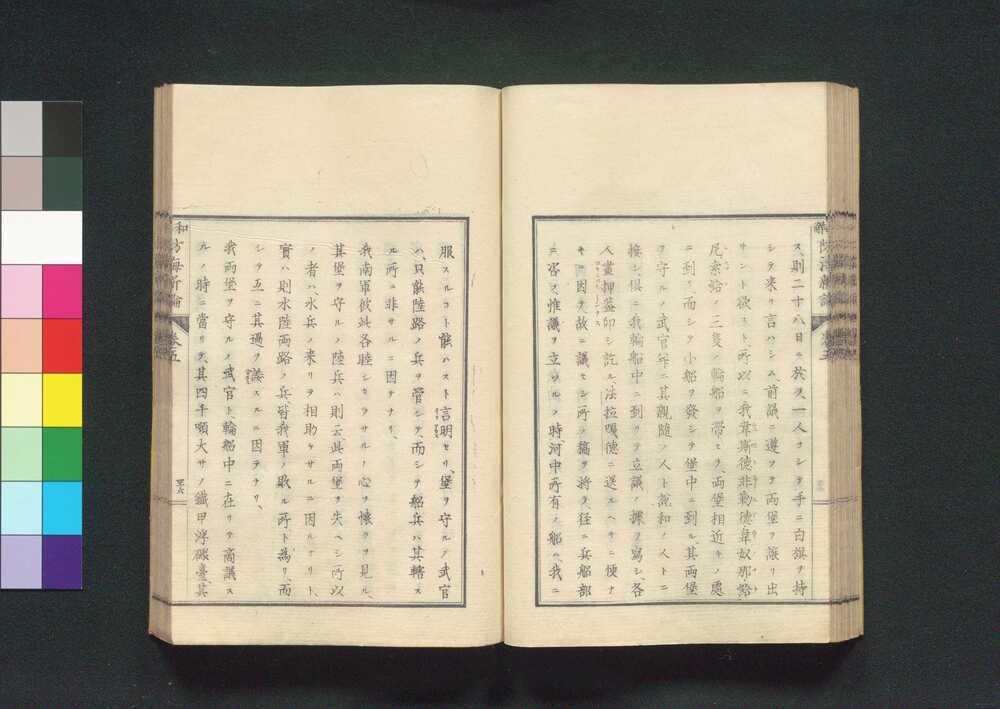 ス、則二十八日ニ於ヲ一人ヲシテ手ニ白旗ヲ持
シテ来リ言ハシム、前議ニ遵ヲ両堡ヲ譲リ出
サント欲スト所以ニ我韋斯德非勒德韋奴那
尼索給ノ三隻ノ輪船ヲ帯ヒテ、両堡相近キノ處
ニ到ル、而シテ小船ヲ發シテ堡中ニ到ル、其両堡
ヲ守ルノ武官等ニ其親隨ノ人ト説和ノ人トニ
接シ、倶ニ我輪船中ニ到リテ立議ノ摸ヲ寫シ、各
人畫押蓋印シ訖ル、法拉嘎德ニ送ルヘキニ便ナ
キニ因テ、故ニ議セシ所ノ摘ヲ将テ、往ニ兵船部
ニ咨ス、惟議ヲ立ツルノ時、河中所有ノ船ハ、我ニ
服スルコト能ハスト言明セリ、堡ヲ守ルノ武官
ハ、只能陸路ノ兵ヲ管シテ、而シテ船兵ハ其轄ス
ル所ニ非サルニ因テナリ、
我南軍彼此各睦シカラサルノ心ヲ懐クヲ見ル、
其堡ヲ守ルノ陸兵ハ則云此両堡ヲ失ヘシ所以
ノ者ハ、水兵ノ来リテ相助ケサルニ因ルナリト、
實ハ則水陸両路ノ兵、皆我軍ノ敗ル所ト為リ、而
シテ互ニ其過ヲ諉スルニ因テナリ、
我両堡ヲ守ルノ武官ト、輪船中ニ在リテ商議ス
ルノ時ニ當リテ、其四千噸大サノ鐵甲浮礮臺、其
卷五